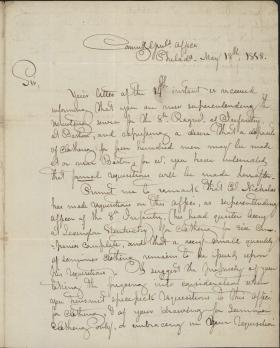 Commy Genls Office
Philada. May 18th, 1838.
Sir,
Your letter of the instant is received
informing that you are now superintending the
recruiting service for the 8th Regmt. of Infantry
at Boston, and expressing a desire that a deposit
of clothing for four hundred men may be made
at or near Boston, for wh. you have understood
that annual requisitions will be made hereafter.
Permit me to remark that
has made requisitions on this office, as superintending
officer of the 8th Infantry, (his head quarters being
at Lexington Kentucky) for clothing for six Com-
panies complete, and that a very small quantity
of summer clothing remains to be issued upon
his requisitions. I suggest the propriety of your
taking the foregoing into consideration when
you transmit specific requisitions to this office
for clothing, & of your drawing for summer
clothing only, & embracing in your Requisition